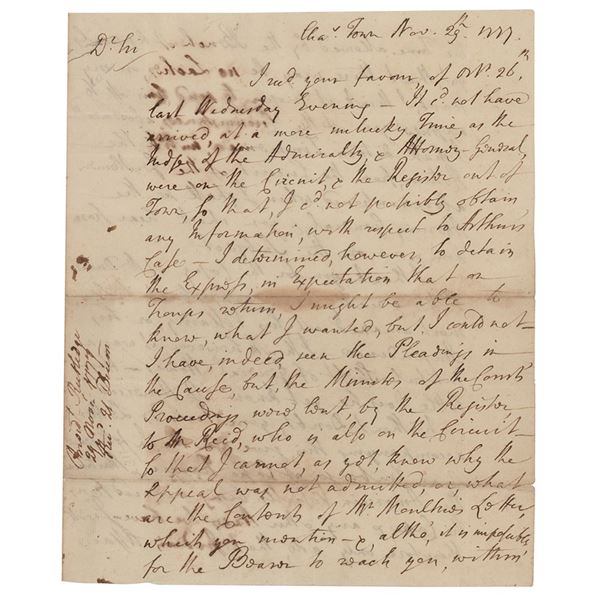 Chas Town Nov. 29th 1777.
Dr Sir
I recd. your favour, of Octr. 26th,
last Wednesday Evening – It cd. not have
arrived, at a more unlucky Time, as the
Judge of the Admiralty, & Attorney-General,
were on the Circuit, & the Register out of
Town, so that, I cd. not possibly obtain
any Information, with respect to Arthur's
Case – I determined, however, to detain
the Express, in Expectation that on
return, I might be able to
know, what I wanted, but I could not –
I have, indeed, seen the Pleadings in
the Cause, but, the Minutes of the Court's
Proceedings were lent, by the Register,
to Mr Reed, who is also on the Circuit –
So that I cannot, as yet, know why the
Appeal was not admitted, or, what
are the Contents of Mr. Moultrie's Letter,
which you mention – &, altho', it is impossible
for the Bearer to reach you, within
Presidt. Rutledge
29 Novr. 1777
Recd 21 Decem